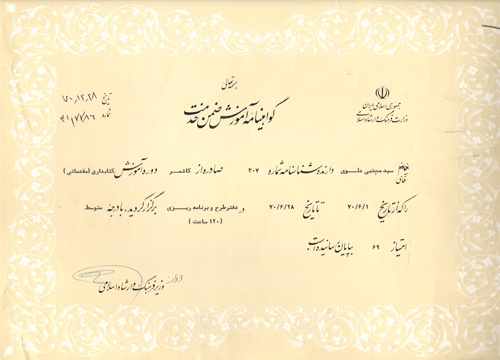 بسمه تعالی
جمهوری اسلامی ایران
وزارت فرهنگ و ارشاد اسلامی
گواهینامه آموزش ضمن خدمت
تاریخ ۷۰,۱۲,۲۸
شماره ۴۱/۷۷۸۶
خانم آقای سید مجتبی علوی دارنده شناسنامه شماره ۲۰۷ صادره از کاشمر دوره آموزش کتابداری (مقدماتی)
را که از تاریخ ۷۰/۶/۱ تا تاریخ ۷۰/۶/۲۸ در دفتر طرح و برنامه ریزی برگزار گردید، با درجه متوسط
(۱۲۰ ساعت)
امتیاز ۶۹ بپایان رسانیده است
از طرف
وزیر فرهنگ و ارشاد اسلامی